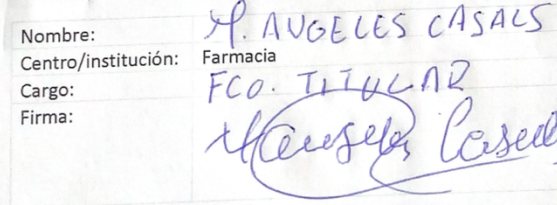 Nombre: M. ANGELES CASALS
Centro/institución: Farmacia
Cargo: FCO. TITULAR
Firma: MAngeles Casals